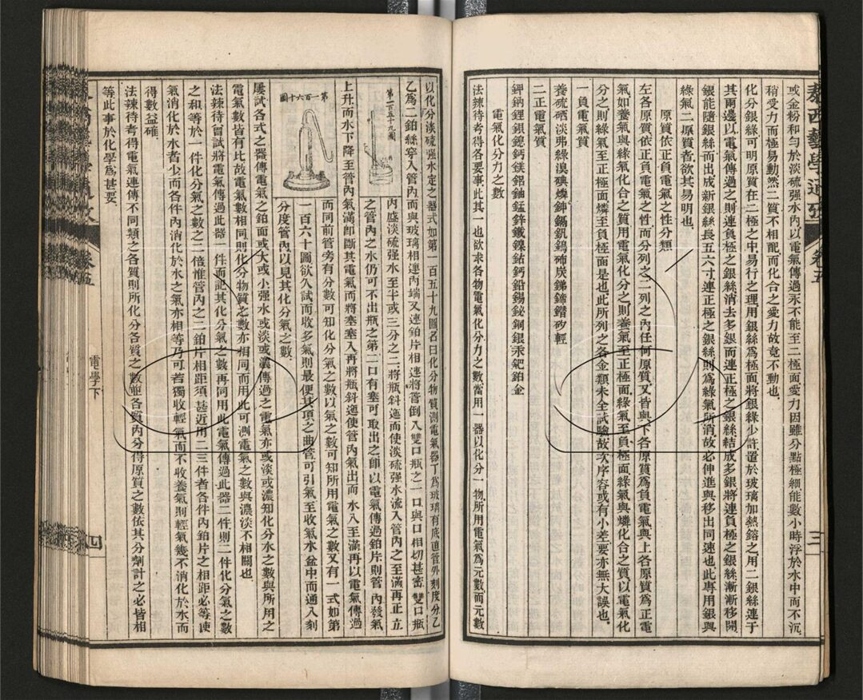 泰西藝學通攷 卷五
三
或金粉和勻於淡硫强水內以電氣傳過汞不能至二極面愛力因雖分點極細能數小時浮於水中而不沉
稍受力而極易動然二質不相配而化合之愛力故竟不動也
化分銀綠可明原質在二極之中易行之理用銀綠爲極面將銀綠少許置於玻璃加熱鎔之用二銀綠連于
其兩邊以電氣傳過之則連負極之銀綠消去多銀而連正極之銀綠結成多銀將連負極之銀綠漸漸移開
銀能隨銀綠而出成新銀綠長五六寸連正極之銀綠則爲綠氣所消故必伸進與移出同速也此專用銀與
綠氣二原質者欲其易明也
原質依正負電氣之性分類
左各原質依正負電氣之性而分列之二列之內任何原質又皆與下各原質爲負電氣與上各原質爲正電
氣如養氣與綠氣化合之質用電氣化分之則養氣至正極面綠氣至負極面綠氣與燐化合之質以電氣化
分之則綠氣至正極面燐至負極面是也此所列之各金類未全試驗故次序容或有小差要亦無大誤也
一負電氣質
養硫硒淡弗綠溴碘燐
二正電氣質
鉀鈉鋰鋇鎴鈣鎂
電氣化分力之數
法辣待考得各要事此其一也欲求各物電氣化分力之數當用一器以化分一物所用電氣爲元數而元數
以化分淡硫强水定之器式如第一百五十九圖名曰化分物質測電氣器丁爲玻璃有底直管外刻度分乙
乙爲二鉑綠穿入管內而與玻璃相連內端又連鉑片將管倒入雙口瓶之一口與口相切甚密雙口瓶
第一百五十九圖
內盛淡硫强水至半或三分之二將瓶斜迤而使淡硫强水流入管內之至滿再正立
之管內之水仍可不出瓶之第二口有塞可取出之卽以電氣傳過鉑片則管內發氣
上升而水下降至管內氣滿卽斷其電氣而將塞塞入再將瓶斜迤使管內氣出而水入至滿再以電氣傳過
第一百六十圖
而同前管旁有分數可知化分氣之數以氣之數可知所用電氣之數又有一式如第
一百六十圖欲久試而收多氣則最便其頂之曲管可引氣至收氣水盆中而通入刻
分度管內以見其化分氣之數
屢試各式之器傳電氣之鉑面或大或小强水或淡或濃傳過之電氣亦或淡或濃知化分水之數與所用之
電氣數皆有比故電氣數相同則化分物質之數亦相同而用此可測電氣之數與濃淡不相關也
法辣待嘗試將電氣傳過此器一件而記其化分氣之數再同用此電氣傳過此器二件則二件化分氣之數
之和等於一件化分氣之數之二倍惟管內之二鉑片相距須甚近用二三件者各件內鉑片之相距必等使
氣消化於水者少而各件內消化於水之氣亦相等乃可者獨收輕氣而不收養氣則輕氣幾不消化於水而
得數益確
法辣待考得電氣連傳不同類之各質則所化分各質之數並各質內分得原質之數依其分劑計之必皆相
等此事於化學爲甚要
電學下
四